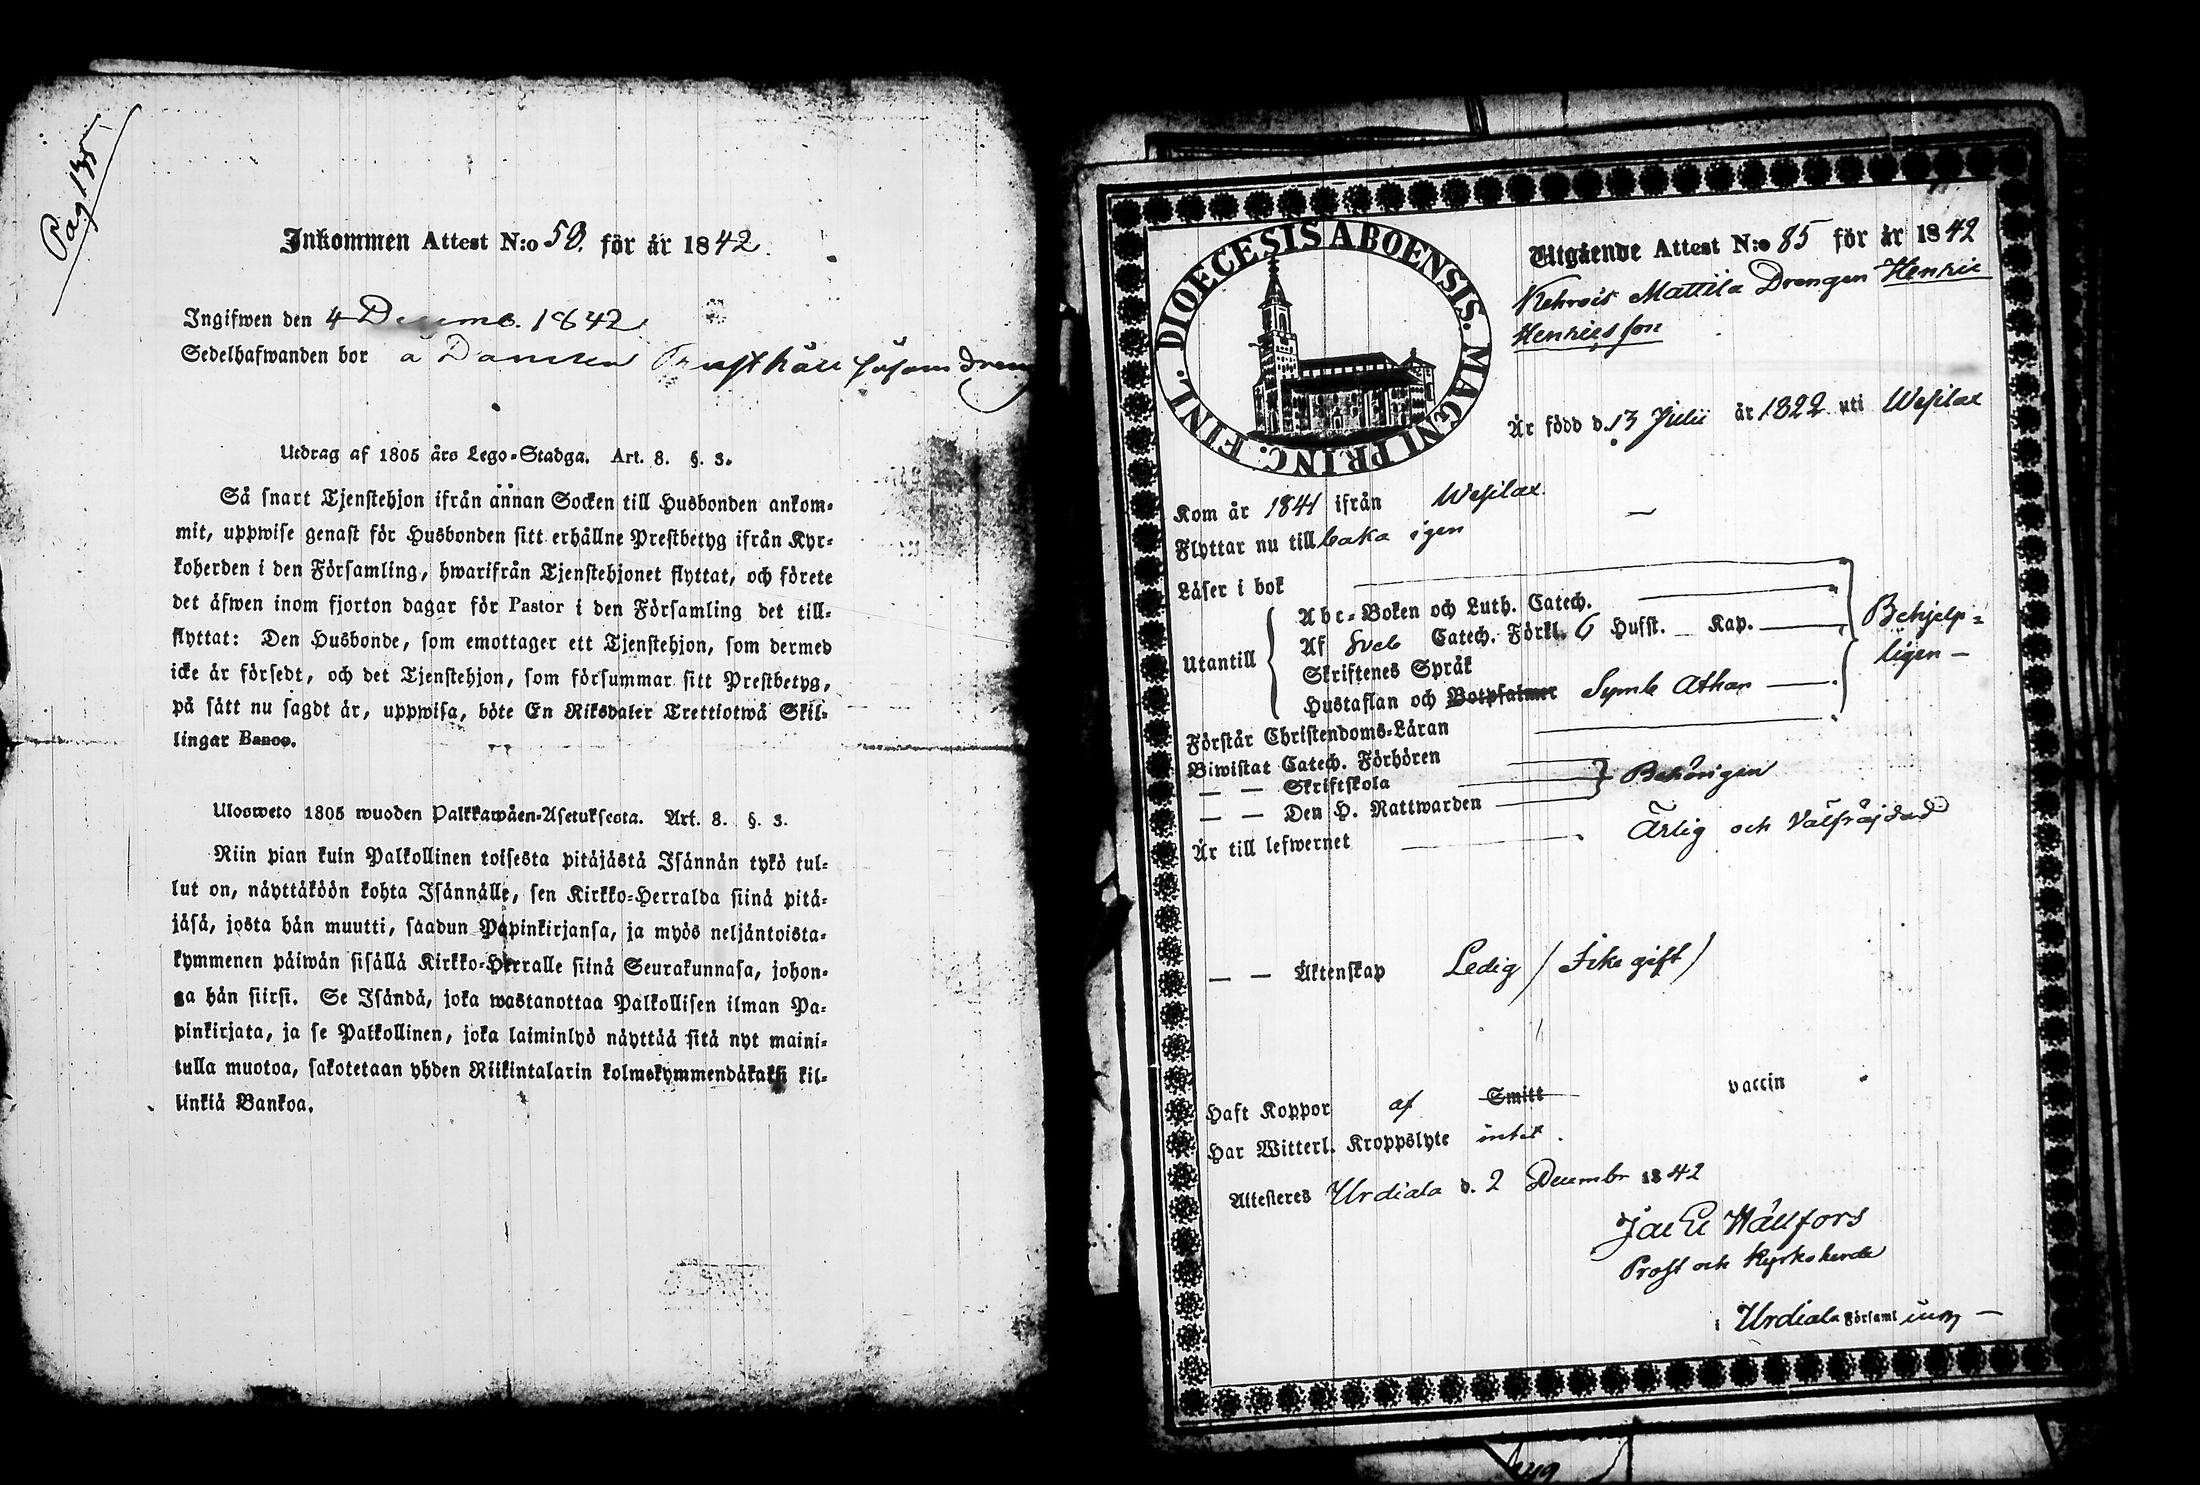 Pag 135
Inkommen Attest N:o 50. för år 1842.
Ingifwen den 4 Decemb. 1842
Sedelhafwanden bor å Dansten såsom dreng
Utdrag af 1805 års Lego-Stadga. Art. 8. §. 3.
Så snart Tjenstehjon ifrån annan Socken till Husbonden ankom-
mit, uppwise genast för Husbonden sitt erhållne Prestbetyg ifrån Kyr-
koherden i den Församling, hwarifrån Tjenstehjonet flyttat, och förete
det äfwen inom fjorton dagar för Pastor i den Församling det till-
flyttat: Den Husbonde, som emottager ett Tjenstehjon, som dermed
icke är försedt, och det Tjenstehjon, som försummar sitt Prestbetyg,
på sätt nu sagdt är, uppwisa, böte En Riksdaler Trettiotwå Skil-
lingar Banco.
Ulosweto 1805 wuoden Palkkawäen-Asetuksesta. Art. 8. §. 3.
Niin pian kuin Palkollinen toisesta pitäjästä Isännän tykö tul-
lut on, näyttäköön kohta Isännälle, sen Kirkko-Herralda siinä pitä-
jäsä, josta hän muutti, saadun Papinkirjansa, ja myös neljäntoista-
kymmenen päiwän sisällä Kirkko-Herralle siinä Seurakunnasa, johon-
ga hän siirsi. Se Isändä, joka wastanottaa Palkollisen ilman Pa-
pinkirjata, ja se Palkollinen, joka laiminlyö näyttää sitä nyt maini-
tulla muotoa, sakotetaan yhden Riikintalarin kolmekymmendäkaksi kil-
linkiä Bankoa.
DIOECESIS ABOENSIS. MAGNI PRINC. FINL.
Utgående Attest N:o 85 för år 1842
Kehrois Mattila Drengen Henric
Henricsson
Är född d. 13 Julii år 1822 uti Wesilax
Kom år 1841 ifrån Wesilax.
Flyttar nu tillbaka igen
Läser i bok
Utantill
Abc-Boken och Luth. Catech.
Af Sveb Catech. Förkl. 6 Hufst. Kap.
Skriftenes Språk
Hustaflan och Botpsalmer Symb Athan
Behjelp-
ligen
Förstår Christendoms-Läran
Biwistat Catech. Förhören
— — Skriftskola
— — Den H. Nattwarden
Behörigen
Är till lefwernet Ärlig och Välfräjdad
— — Äktenskap Ledig / Icke gift /
Haft Koppor af Smitt vaccin
Har Witterl. Kroppslyte intet.
Attesteres Urdiala d. 2 Decembr 1842
Jac El Hällfors
Prost och Kyrkoherde
i Urdiala Församl ing